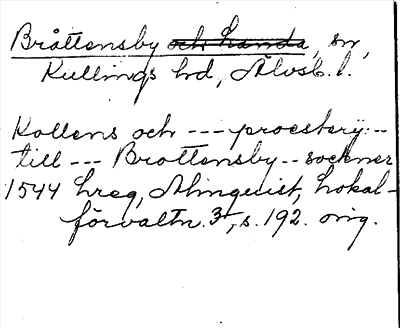 Bråttensby och Landa, sn,
Kullings hd, Älvsb. l.
Kollens och --- proesterij --
till --- Brottensby -- sockner
1544 hreg, Almquist, Lokal-
förvaltn. 3, s. 192. orig.